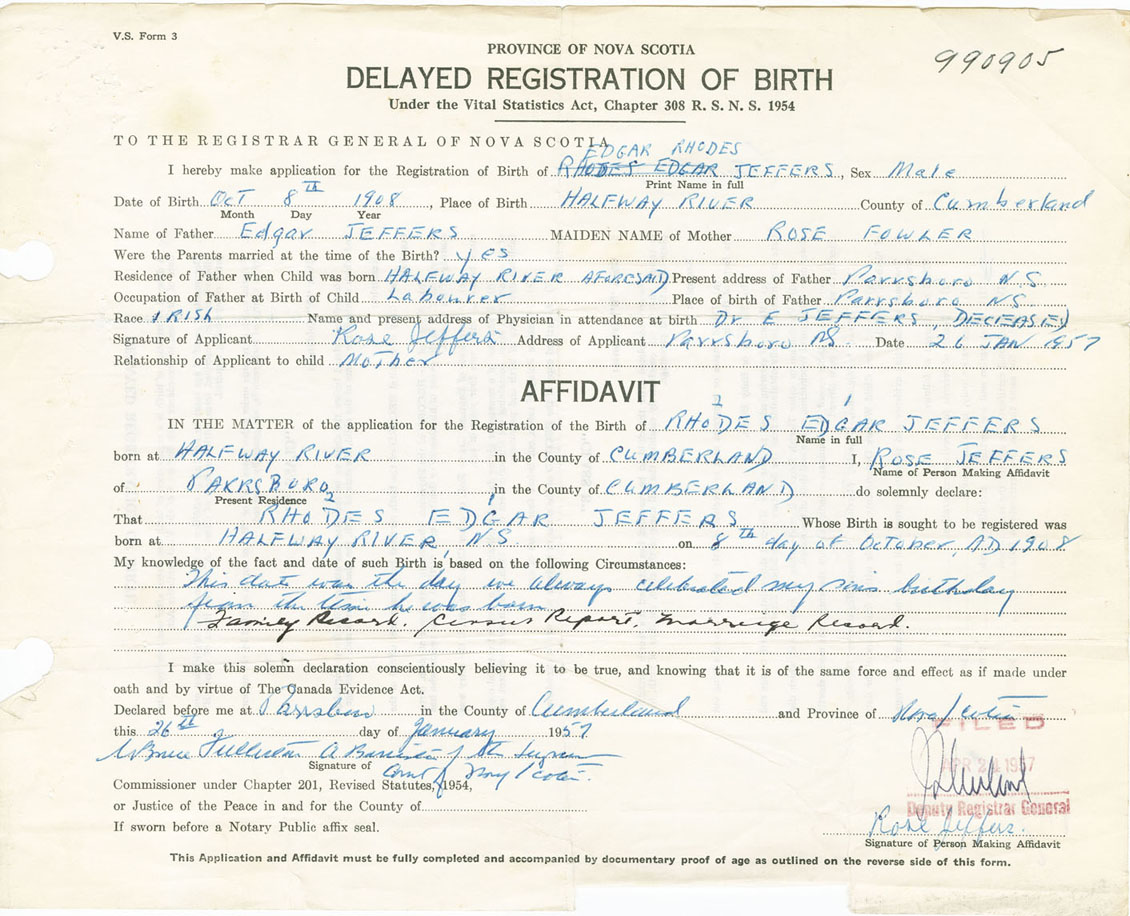 V.S. Form 3
PROVINCE OF NOVA SCOTIA
990905
DELAYED REGISTRATION OF BIRTH
Under the Vital Statistics Act, Chapter 308 R. S. N. S. 1954
TO THE REGISTRAR GENERAL OF NOVA SCOTIA
EDGAR RHODES
I hereby make application for the Registration of Birth of RHODES EDGAR JEFFERS, Sex Male
Print Name in full
Date of Birth Oct 8TH 1908, Place of Birth HALFWAY RIVER County of Cumberland
Month Day Year
Name of Father Edgar JEFFERS MAIDEN NAME of Mother ROSE FOWLER
Were the Parents married at the time of the Birth? yes
Residence of Father when Child was born HALFWAY RIVER AFORESAID Present address of Father Parrsboro N.S.
Occupation of Father at Birth of Child Labourer Place of birth of Father Parrsboro NS
Race IRISH Name and present address of Physician in attendance at birth Dr E JEFFERS, DECEASED
Signature of Applicant Rose Jeffers Address of Applicant Parrsboro NS. Date 26 JAN 1957
Relationship of Applicant to child Mother
AFFIDAVIT
2 1
IN THE MATTER of the application for the Registration of the Birth of RHODES EDGAR JEFFERS
Name in full
born at HALFWAY RIVER in the County of CUMBERLAND I, ROSE JEFFERS
Name of Person Making Affidavit
of PARRSBORO in the County of CUMBERLAND do solemnly declare:
Present Residence 2 1
That RHODES EDGAR JEFFERS Whose Birth is sought to be registered was
born at HALFWAY RIVER, NS on 8th day of October, AD 1908
My knowledge of the fact and date of such Birth is based on the following Circumstances:
This date was the day we always celebrated my sons birthday
from the time he was born
Family Record. Census Report. Marriage Record.
I make this solemn declaration conscientiously believing it to be true, and knowing that it is of the same force and effect as if made under
oath and by virtue of The Canada Evidence Act.
Declared before me at Parrsboro in the County of Cumberland and Province of Nova Scotia
this 26th day of January 1957
FILED
A Barrister of the Supreme
Signature of Court of Nova Scotia.
APR 24 1957
Commissioner under Chapter 201, Revised Statutes, 1954,
or Justice of the Peace in and for the County of
Deputy Registrar General
If sworn before a Notary Public affix seal.
Rose Jeffers.
Signature of Person Making Affidavit
This Application and Affidavit must be fully completed and accompanied by documentary proof of age as outlined on the reverse side of this form.